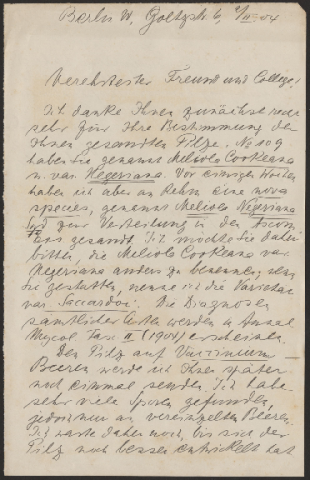 Berlin W, Goltzstr. 6, 04
Verehrtester Freund und College!
Ich danke Ihnen zunächst recht
sehr für Ihre Bestimmung der
Ihnen gesandten Pilze. No 109
haben Sie genannt Meliola Cookeana
n. var. Negeriana. Vor einigen Wochen
habe ich aber an Rehm eine nova
species, genannt Meliola Negeriana
zur Verteilung in den Ascom.
Exs gesandt. Ich möchte Sie daher
bitten, die Meliola Cookeana var.
Negeriana anders zu benennen,
Sie gestatten, nenne ich die Varietät
var. Saccardoi. Die Diagnosen
sämtlicher Arten werden in Annal.
Mycol. II (1904) erscheinen.
Den Pilz auf Vaccinium-
Beeren werde ich Ihnen später
noch einmal senden. Ich habe
sehr viele Sporen gefunden,
jedoch nur an vereinzelten Beeren.
Ich warte daher noch, bis sich der
Pilz noch besser entwickelt hat